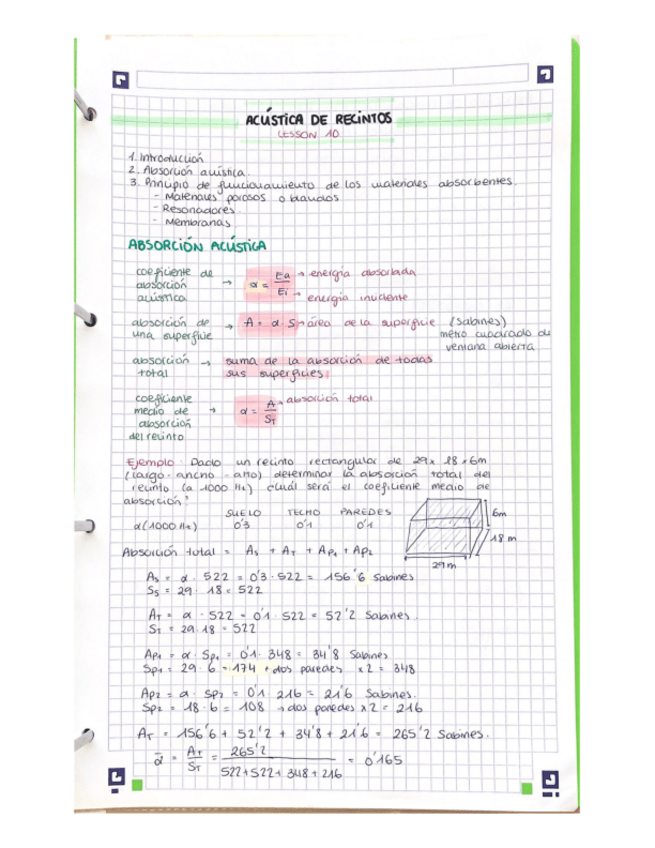 ACÚSTICA DE RECINTOS
LESSON 10
1. Introducción
2. Absorción acústica.
3. Principio de funcionamiento de los materiales absorbentes.
- Materiales porosos o blandos
- Resonadores.
- Membranas
ABSORCIÓN ACÚSTICA
coeficiente de absorción acústica → α = Ea / Ei → energía absorbida
→ energía incidente
absorción de una superficie → A = α · S → área de la superficie (Sabines)
metro cuadrado de ventana abierta
absorción total → suma de la absorción de todas sus superficies.
coeficiente medio de absorción del recinto → α = A / ST → absorción total
Ejemplo: Dado un recinto rectangular de 29 x 18 x 6m
(largo · ancho · alto) determinar la absorción total del
recinto (a 1000 Hz) ¿cuál será el coeficiente medio de
absorción?
SUELO TECHO PAREDES
α (1000 Hz) 0'3 0'1 0'1
6m
18 m
29 m
Absorción total = AS + AT + AP1 + AP2
AS = α · 522 = 0'3 · 522 = 156'6 Sabines
SS = 29 · 18 = 522
AT = α · 522 = 0'1 · 522 = 52'2 Sabines.
ST = 29 · 18 = 522
AP1 = α · SP1 = 0'1 · 348 = 34'8 Sabines
SP1 = 29 · 6 = 174 → dos paredes x 2 = 348
AP2 = α · SP2 = 0'1 · 216 = 21'6 Sabines.
SP2 = 18 · 6 = 108 → dos paredes x 2 = 216
AT = 156'6 + 52'2 + 34'8 + 21'6 = 265'2 Sabines.
ᾱ = AT / ST = 265'2 / 522 + 522 + 348 + 216 = 0'165